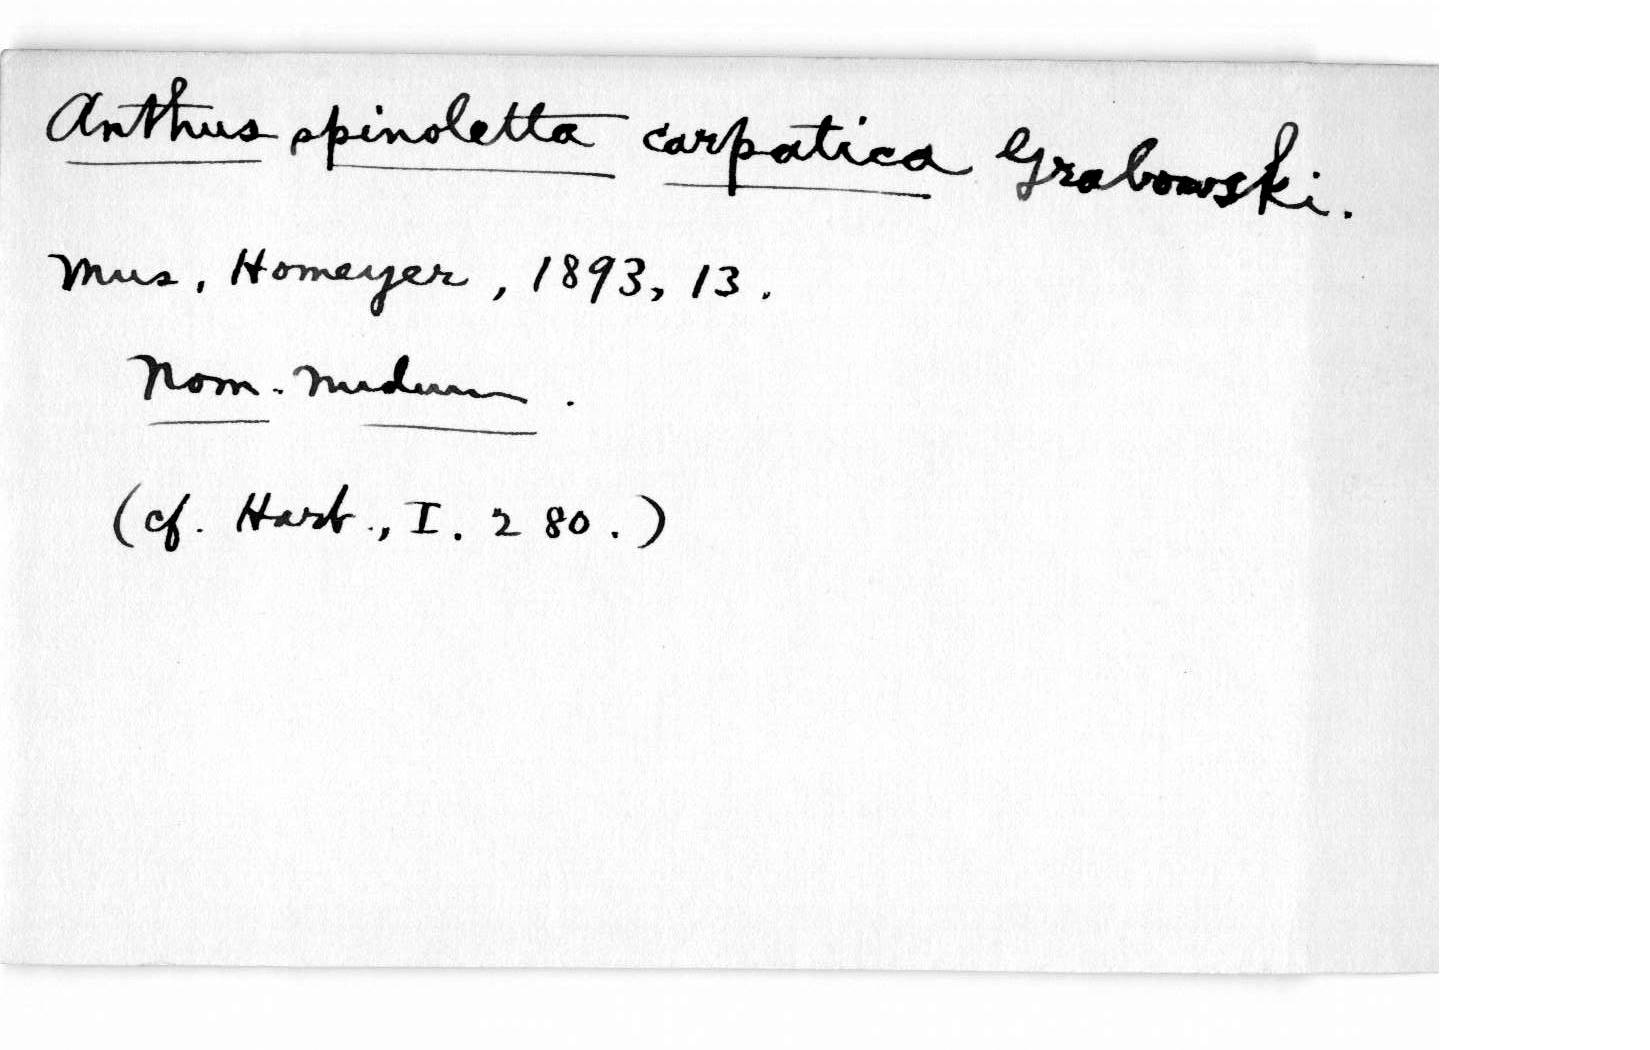 Anthus spinoletta carpatica Grabowski.
Mus. Homeyer, 1893, 13.
Nom. nudum.
(cf. Hart., I. 280.)